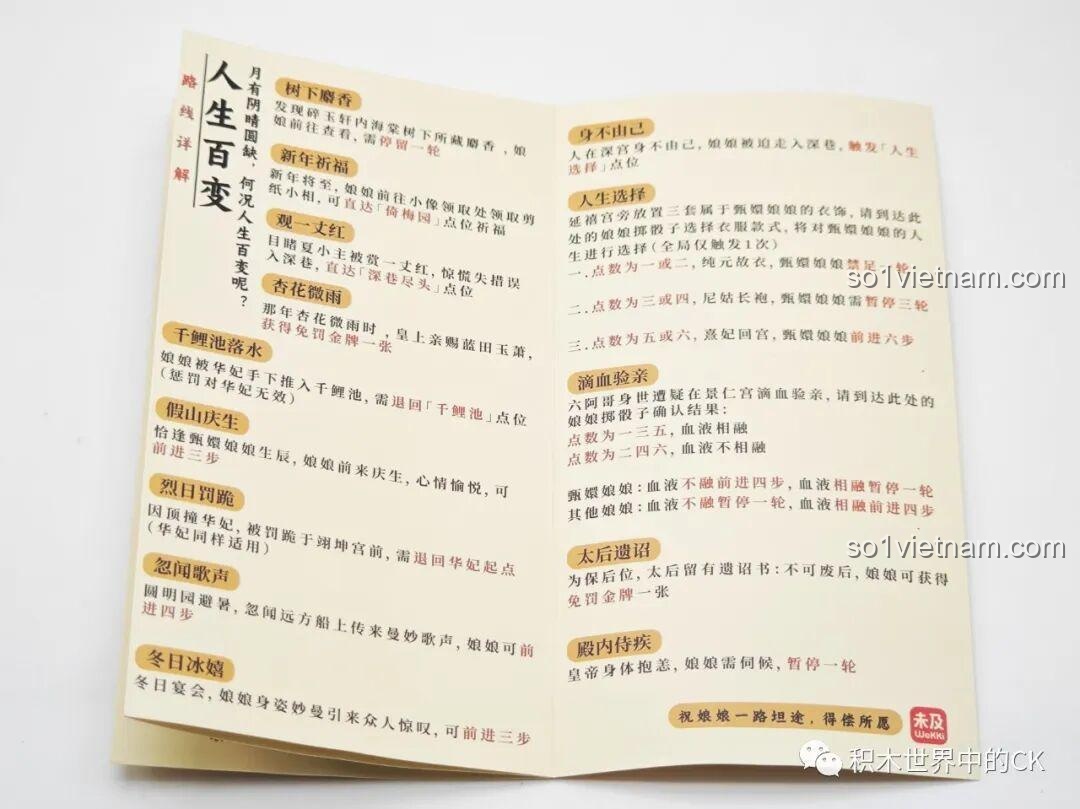 路线详解
人生百变
月有阴晴圆缺，何况人生百变呢？
树下麝香
发现碎玉轩内海棠树下所藏麝香，娘
娘前往查看，需停留一轮
新年祈福
新年将至，娘娘前往小像领取处领取剪
纸小相，可直达「倚梅园」点位祈福
观一丈红
目睹夏小主被赏一丈红，惊慌失措误
入深巷，直达「深巷尽头」点位
杏花微雨
那年杏花微雨时，皇上亲赐蓝田玉萧，
获得免罚金牌一张
千鲤池落水
娘娘被华妃手下推入千鲤池，需退回「千鲤池」点位
（惩罚对华妃无效）
假山庆生
恰逢甄嬛娘娘生辰，娘娘前来庆生，心情愉悦，可
前进三步
烈日罚跪
因顶撞华妃，被罚跪于翊坤宫前，需退回华妃起点
（华妃同样适用）
忽闻歌声
圆明园避暑，忽闻远方船上传来曼妙歌声，娘娘可前
进四步
冬日冰嬉
冬日宴会，娘娘身姿妙曼引来众人惊叹，可前进三步
身不由己
人在深宫身不由己，娘娘被迫走入深巷，触发「人生
选择」点位
人生选择
延禧宫旁放置三套属于甄嬛娘娘的衣饰，请到达此
处的娘娘掷骰子选择衣服款式，将对甄嬛娘娘的人
生进行选择（全局仅触发1次）
一.点数为一或二，纯元故衣，甄嬛娘娘禁足一轮
二.点数为三或四，尼姑长袍，甄嬛娘娘需暂停三轮
三.点数为五或六，熹妃回宫，甄嬛娘娘前进六步
滴血验亲
六阿哥身世遭疑在景仁宫滴血验亲，请到达此处的
娘娘掷骰子确认结果：
点数为一三五，血液相融
点数为二四六，血液不相融
甄嬛娘娘：血液不融前进四步，血液相融暂停一轮
其他娘娘：血液不融暂停一轮，血液相融前进四步
太后遗诏
为保后位，太后留有遗诏书：不可废后，娘娘可获得
免罚金牌一张
殿内侍疾
皇帝身体抱恙，娘娘需伺候，暂停一轮
祝娘娘一路坦途，得偿所愿
未及
WeKKi
so1vietnam.com
so1vietnam.com
积木世界中的CK